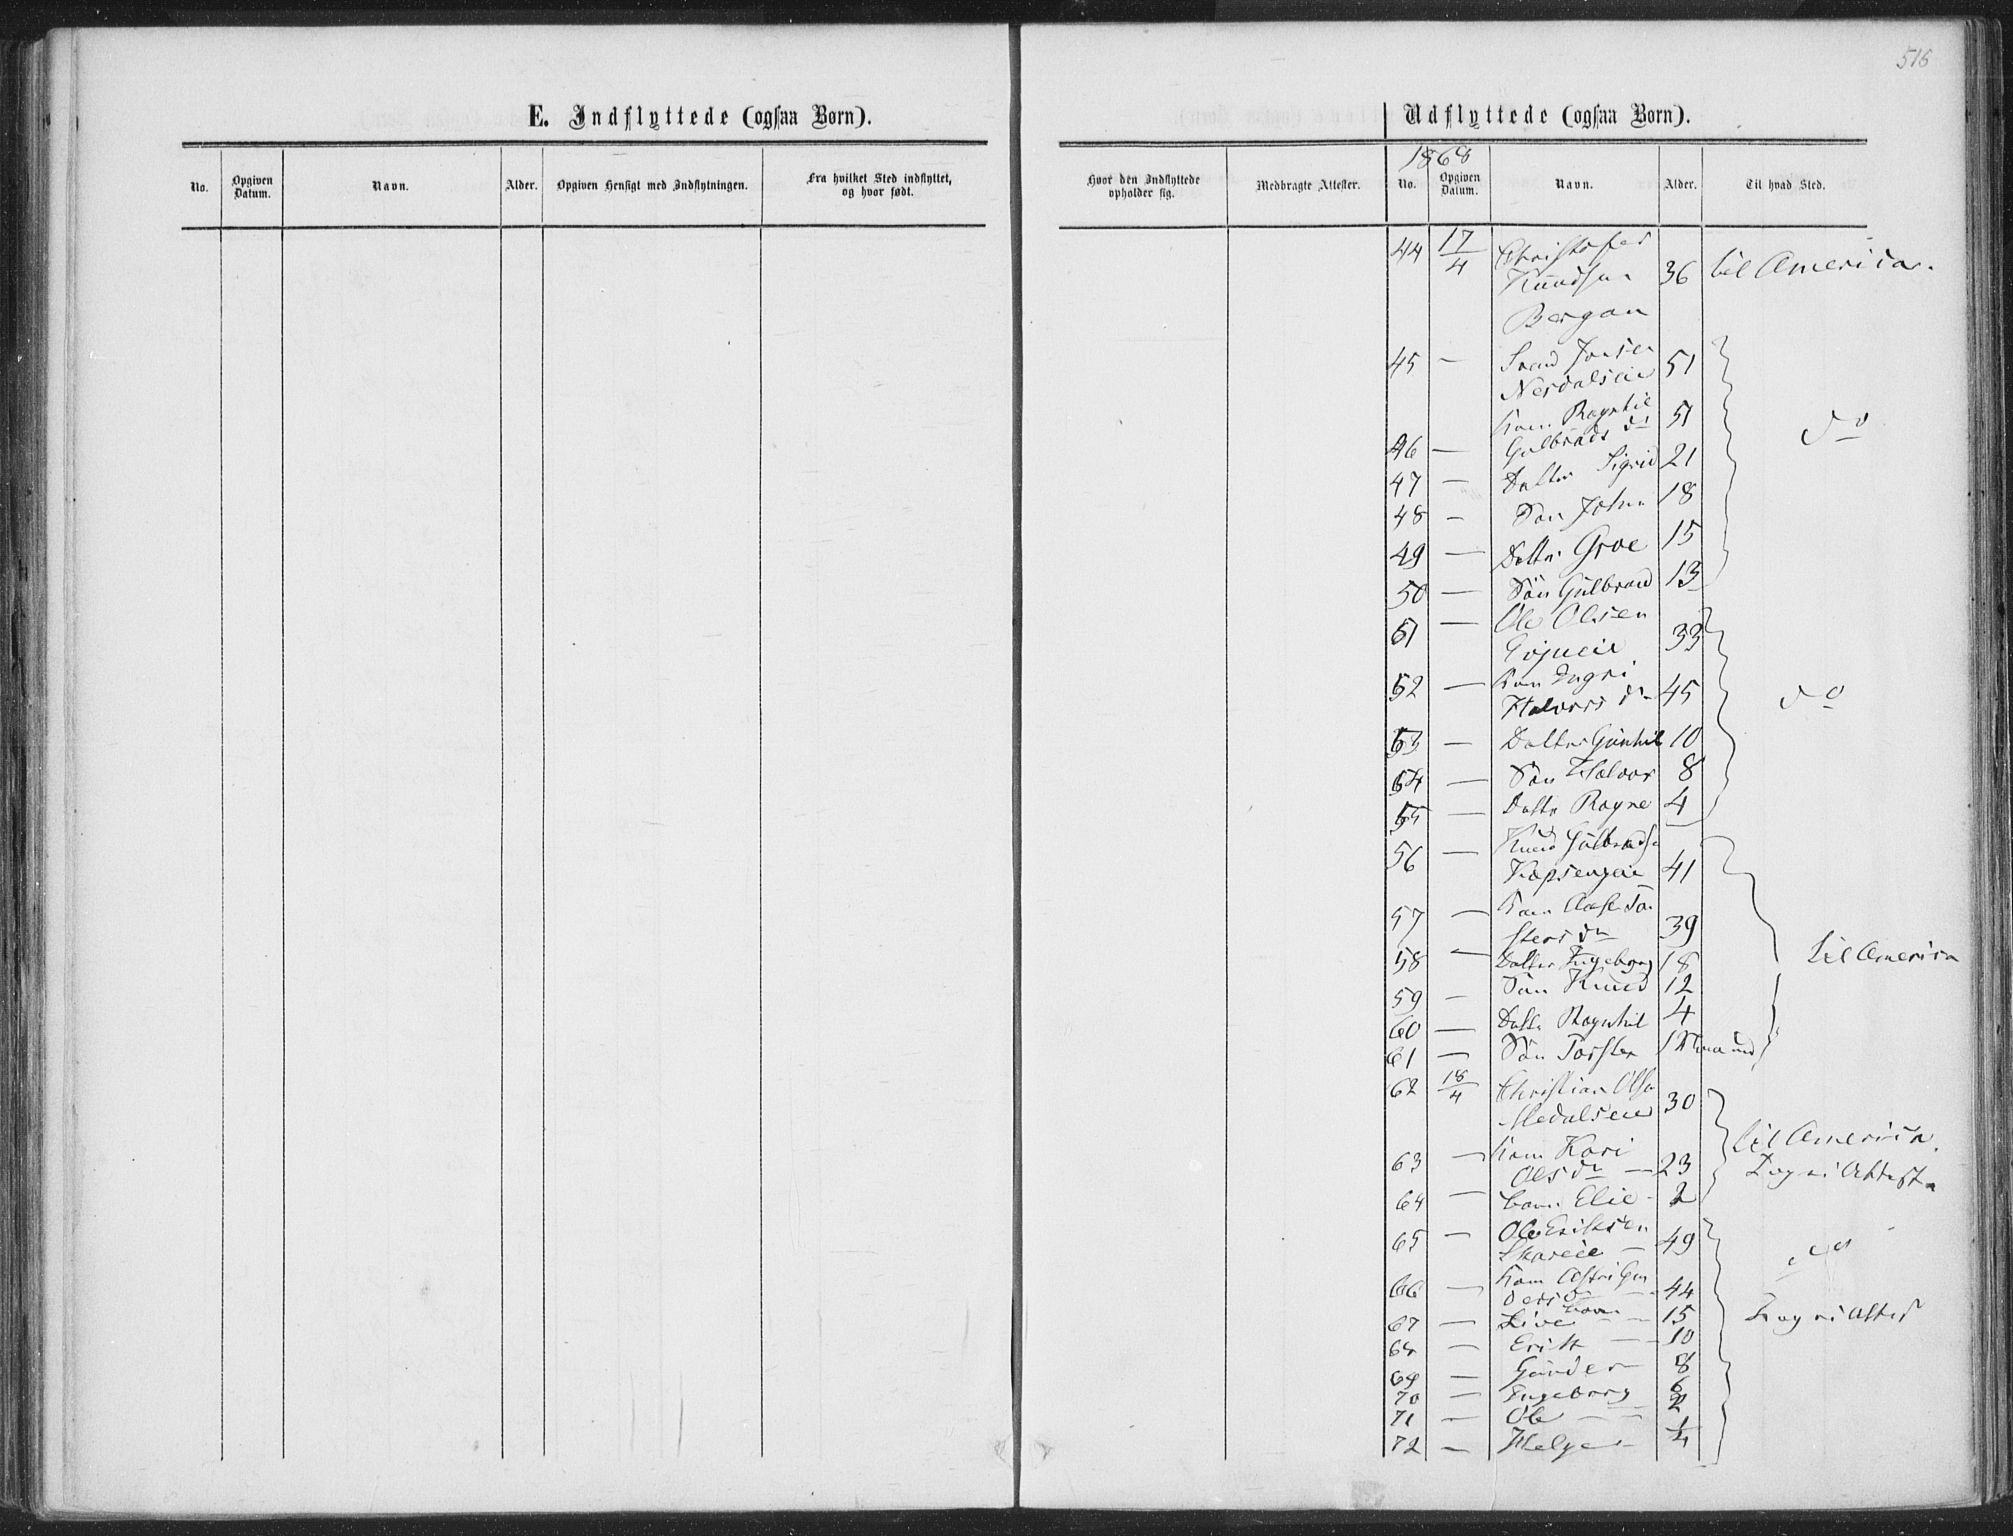 516
E. Indflyttede (ogsaa Børn).
Udflyttede (ogsaa Børn).
No.
Opgiven Datum.
Navn.
Alder.
Opgiven Hensigt med Indflytningen.
Fra hvilket Sted indflyttet, og hvor født.
Hvor den Indflyttede opholder sig.
Medbragte Attester.
1868
No.
Opgiven Datum.
Navn.
Alder.
Til hvad Sted.
44 17/4 Christofer
Knudsen 36 til America.
Bergan
45 — Svend Jonsen
Nesdalseie 51
Kone Ragnhil 51 do
46 — Gulbrands dr
47 — Datter Sigrid 21
48 — Søn John 18
49 — Datter Groe 15
50 — Søn Gulbrand 13
51 — Ole Olsen
33
52 — Kone Ingri
Halvors dr 45 do
53 — Datter Gunhil 10
54 — Søn Halvor 8
55 — Datter Ragne 4
56 — Knud Gulbrands
41
57 — Kone Aase Tor
stens dr 39
58 — Datter Ingeborg 18 til America
59 — Søn Knud 12
60 — Datter Ragnhil 4
61 — Søn Torsten
62 18/4 Christian Olsen
30
til America.
63 — Kone Kari
Ols dr — 23
64 — barn Elie - 2
65 — Ole Eriksen
49
do
66 — Kone Astri Gun
ders d — 44
67 — Live — 15
68 — Erik — 10
69 — Gunder — 8
70 — Ingeborg 6
71 — Ole — 2
72 — Helge — 1/4